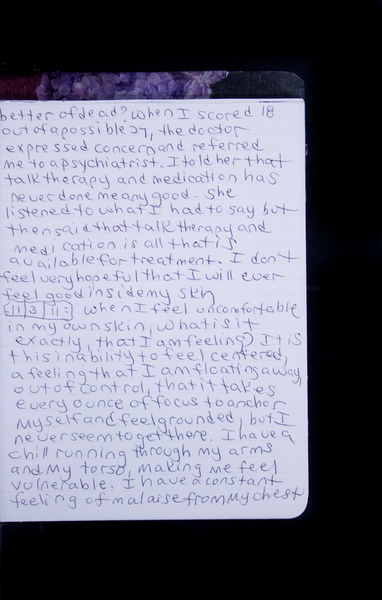 better of dead? when I scored 18
out of a possible 27, the doctor
expressed concern and referred
me to a psychiatrist. I told her that
talk therapy and medication has
never done me any good. She
listened to what I had to say but
then said that talk therapy and
medication is all that is
available for treatment. I don't
feel very hopeful that I will ever
feel good inside my skin
11 3 11: when I feel uncomfortable
in my own skin, what is it
exactly, that I am feeling? It is
this inability to feel centered,
a feeling that I am floating away,
out of control, that it takes
every ounce of focus to anchor
myself and feel grounded, but I
never seem to get there. I have a
chill running through my arms
and my torso, making me feel
vulnerable. I have a constant
feeling of malaise from my chest